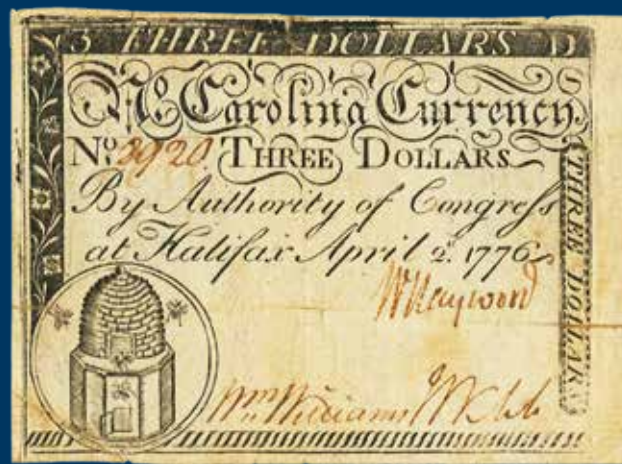 3 THREE DOLLARS D
No. Carolina Currency.
No. 3920. THREE DOLLARS
By Authority of Congress
at Halifax April 2d. 1776
THREE DOLLARS
W Haywood
Wm Williams J Webb